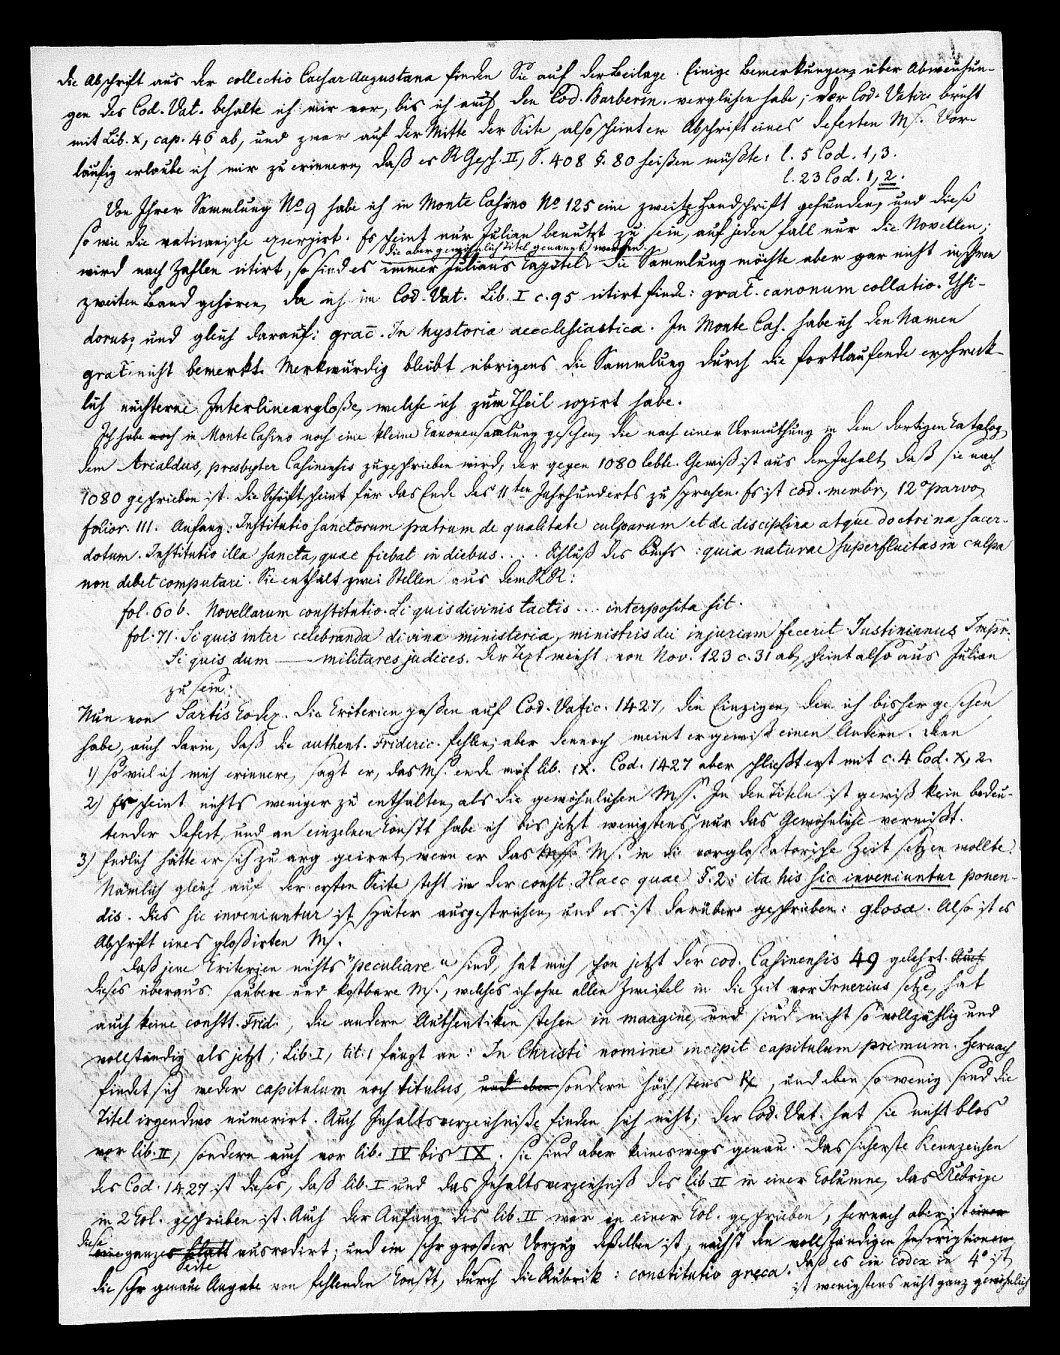 die Abschrift aus der collectio Caesar Augustana finden Sie auf der Beilage. Einige Bemerkungen über Abweichun-
gen des Cod. Vat. behalte ich mir vor, bis ich auch den Cod. Barberin. verglichen habe; der Cod. Vatic. bricht
mit Lib. X, cap. 46 ab, und zwar auf der Mitte der Seite, also scheint er Abschrift eines defecten Ms. Vor-
läufig erlaube ich mir zu erinnern, daß es RGesch. II, S. 408 §. 80 heißen müßte: l. 5 Cod. 1, 3.
l. 23 Cod. 1, 2.
Von Ihrer Sammlung No 9 habe ich in Monte Casino No 125 eine zweite Handschrift gefunden, und diese
so wie die vaticanische excerpirt. Es scheint nur Julian benutzt zu sein, auf jeden Fall nur die Novellen;
die aber gewöhnlich Titel genannt werden.
wird nach Zahlen citirt, so sind es immer Julians Capitel. Die Sammlung möchte aber gar nicht in Ihren
zweiten Band gehören, da ich im Cod. Vat. Lib. I c. 95 citirt finde: grat. canonum collatio. Ysi-
dorus, und gleich darauf: grac. In hystoria aecclesiastica. In Monte Cas. habe ich den Namen
grat. nicht bemerkt. Merkwürdig bleibt übrigens die Sammlung durch die fortlaufende erschreck-
lich nüchterne Interlinearglosse, welche ich zum Theil copirt habe.
Ich habe noch in Monte Casino noch eine kleine Canonensamlung gesehen, die nach einer Vermuthung in dem dortigen Catalog
dem Arialdus, presbyter Casinensis zugeschrieben wird, der gegen 1080 lebte. Gewiß ist aus dem Inhalt, daß sie nach
1080 geschrieben ist. Die Schrift scheint für das Ende des 11ten Jahrhunderts zu sprechen. Es ist cod. membr, 12o parvo,
folior. 111. Anfang: Institutio sanctorum patrum de qualitate culparum et de disciplina atque doctrina sacer-
dotum. Institutio illa sancta, quae fiebat in diebus .... Schluß des Buchs: quia naturae superfluitas in culpa
non debet computari. Sie enthält zwei Stellen aus dem RR:
fol. 60 b. Novellarum constitutio. Si quis divinis tactis ... interposita sit.
fol. 71. Si quis inter celebranda divina ministeria, ministris dei injuriam fecerit Justinianus Impr.
Si quis dum —— militares judices. Der Text weicht von Nov. 123 c. 31 ab, scheint also aus Julian
zu sein.
Nun von Sartis Codex. Die Criterien passen auf Cod. Vatic. 1427, den Einzigen, den ich bisher gesehen
habe, auch darin, daß die authent. Frideric. fehlen; aber dennoch meint er gewiß einen Andern. Denn
1) so viel ich mich erinnere, sagt er, das Ms. ende mit lib. IX. Cod. 1427 aber schließt erst mit c. 4 Cod. X, 2.
2) Es scheint nichts weniger zu enthalten, als die gewöhnlichen Ms. In den Titeln ist gewiß kein bedeu-
tender Defect, und an einzelnen Constt habe ich bis jetzt wenigstens nur das Gewöhnliche vermißt.
3) Endlich hätte er sich zu arg geirrt, wenn er das Ms. in die vorglossatorische Zeit setzen wollte.
Nämlich gleich auf der ersten Seite steht in der const. Haec quae §. 2: ita his sic inveniuntur ponen-
dis. Dies sic inveniuntur ist später ausgestrichen, und es ist darüber geschrieben: glosa. Also ist es
Abschrift eines glossirten Ms.
Daß jene Criterien nichts "peculiare" sind, hat mich schon jetzt der cod. Casinensis 49 gelehrt. Auch
dieses überaus saubere und kostbare Ms., welches ich ohne allen Zweifel in die Zeit vor Irnerius setze, hat
auch keine constt. Frid., die andern Authentiken stehen in margine, und sind nicht so vollzählig und
vollständig als jetzt; Lib. I, tit. 1 fängt an: In Christi nomine incipit capitulum primum. Hernach
findet sich weder capitulum noch titulus, und eben sondern höchstens Rx, und eben so wenig sind die
Titel irgendwo numerirt. Auch Inhaltsverzeichnisse finden sich nicht; der Cod. Vat. hat sie nicht blos
vor lib. II, sondern auch vor lib. IV bis IX. sie sind aber keineswegs genau. Das sicherste Kennzeichen
des Cod. 1427 ist dieses, daß lib. I und das Inhaltsverzeichniß des lib. II in einer Columne, das Uebrige
in 2 Col. geschrieben ist. Auch der Anfang des lib. II war in einer Col. geschrieben, hernach aber ist einer
diese
eine ganzes Blatt ausradirt; und ein sehr großer Vorzug desselben ist, nächst den vollständigen Inscriptionen
Seite
die sehr genaue Angabe von fehlenden Constt, durch die Rubrik: constitutio greca. Daß es ein Codex in 4o ist,
ist wenigstens nicht ganz gewöhnlich